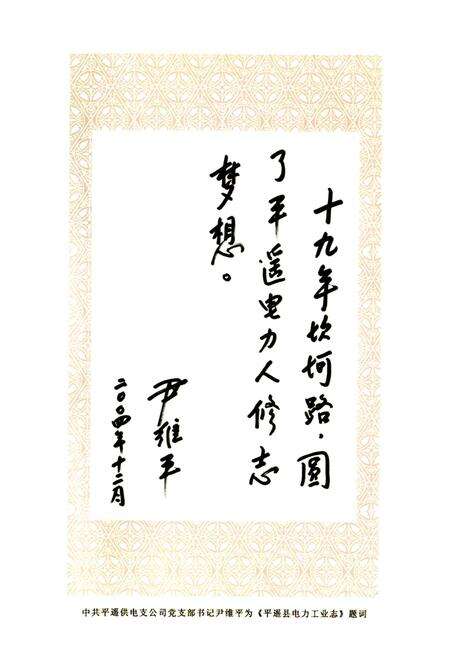 十九年坎坷路·圆
了平遥电力人修志
梦想。
尹维平
二〇〇四年十二月
中共平遥供电支公司党支部书记尹维平为《平遥县电力工业志》题词